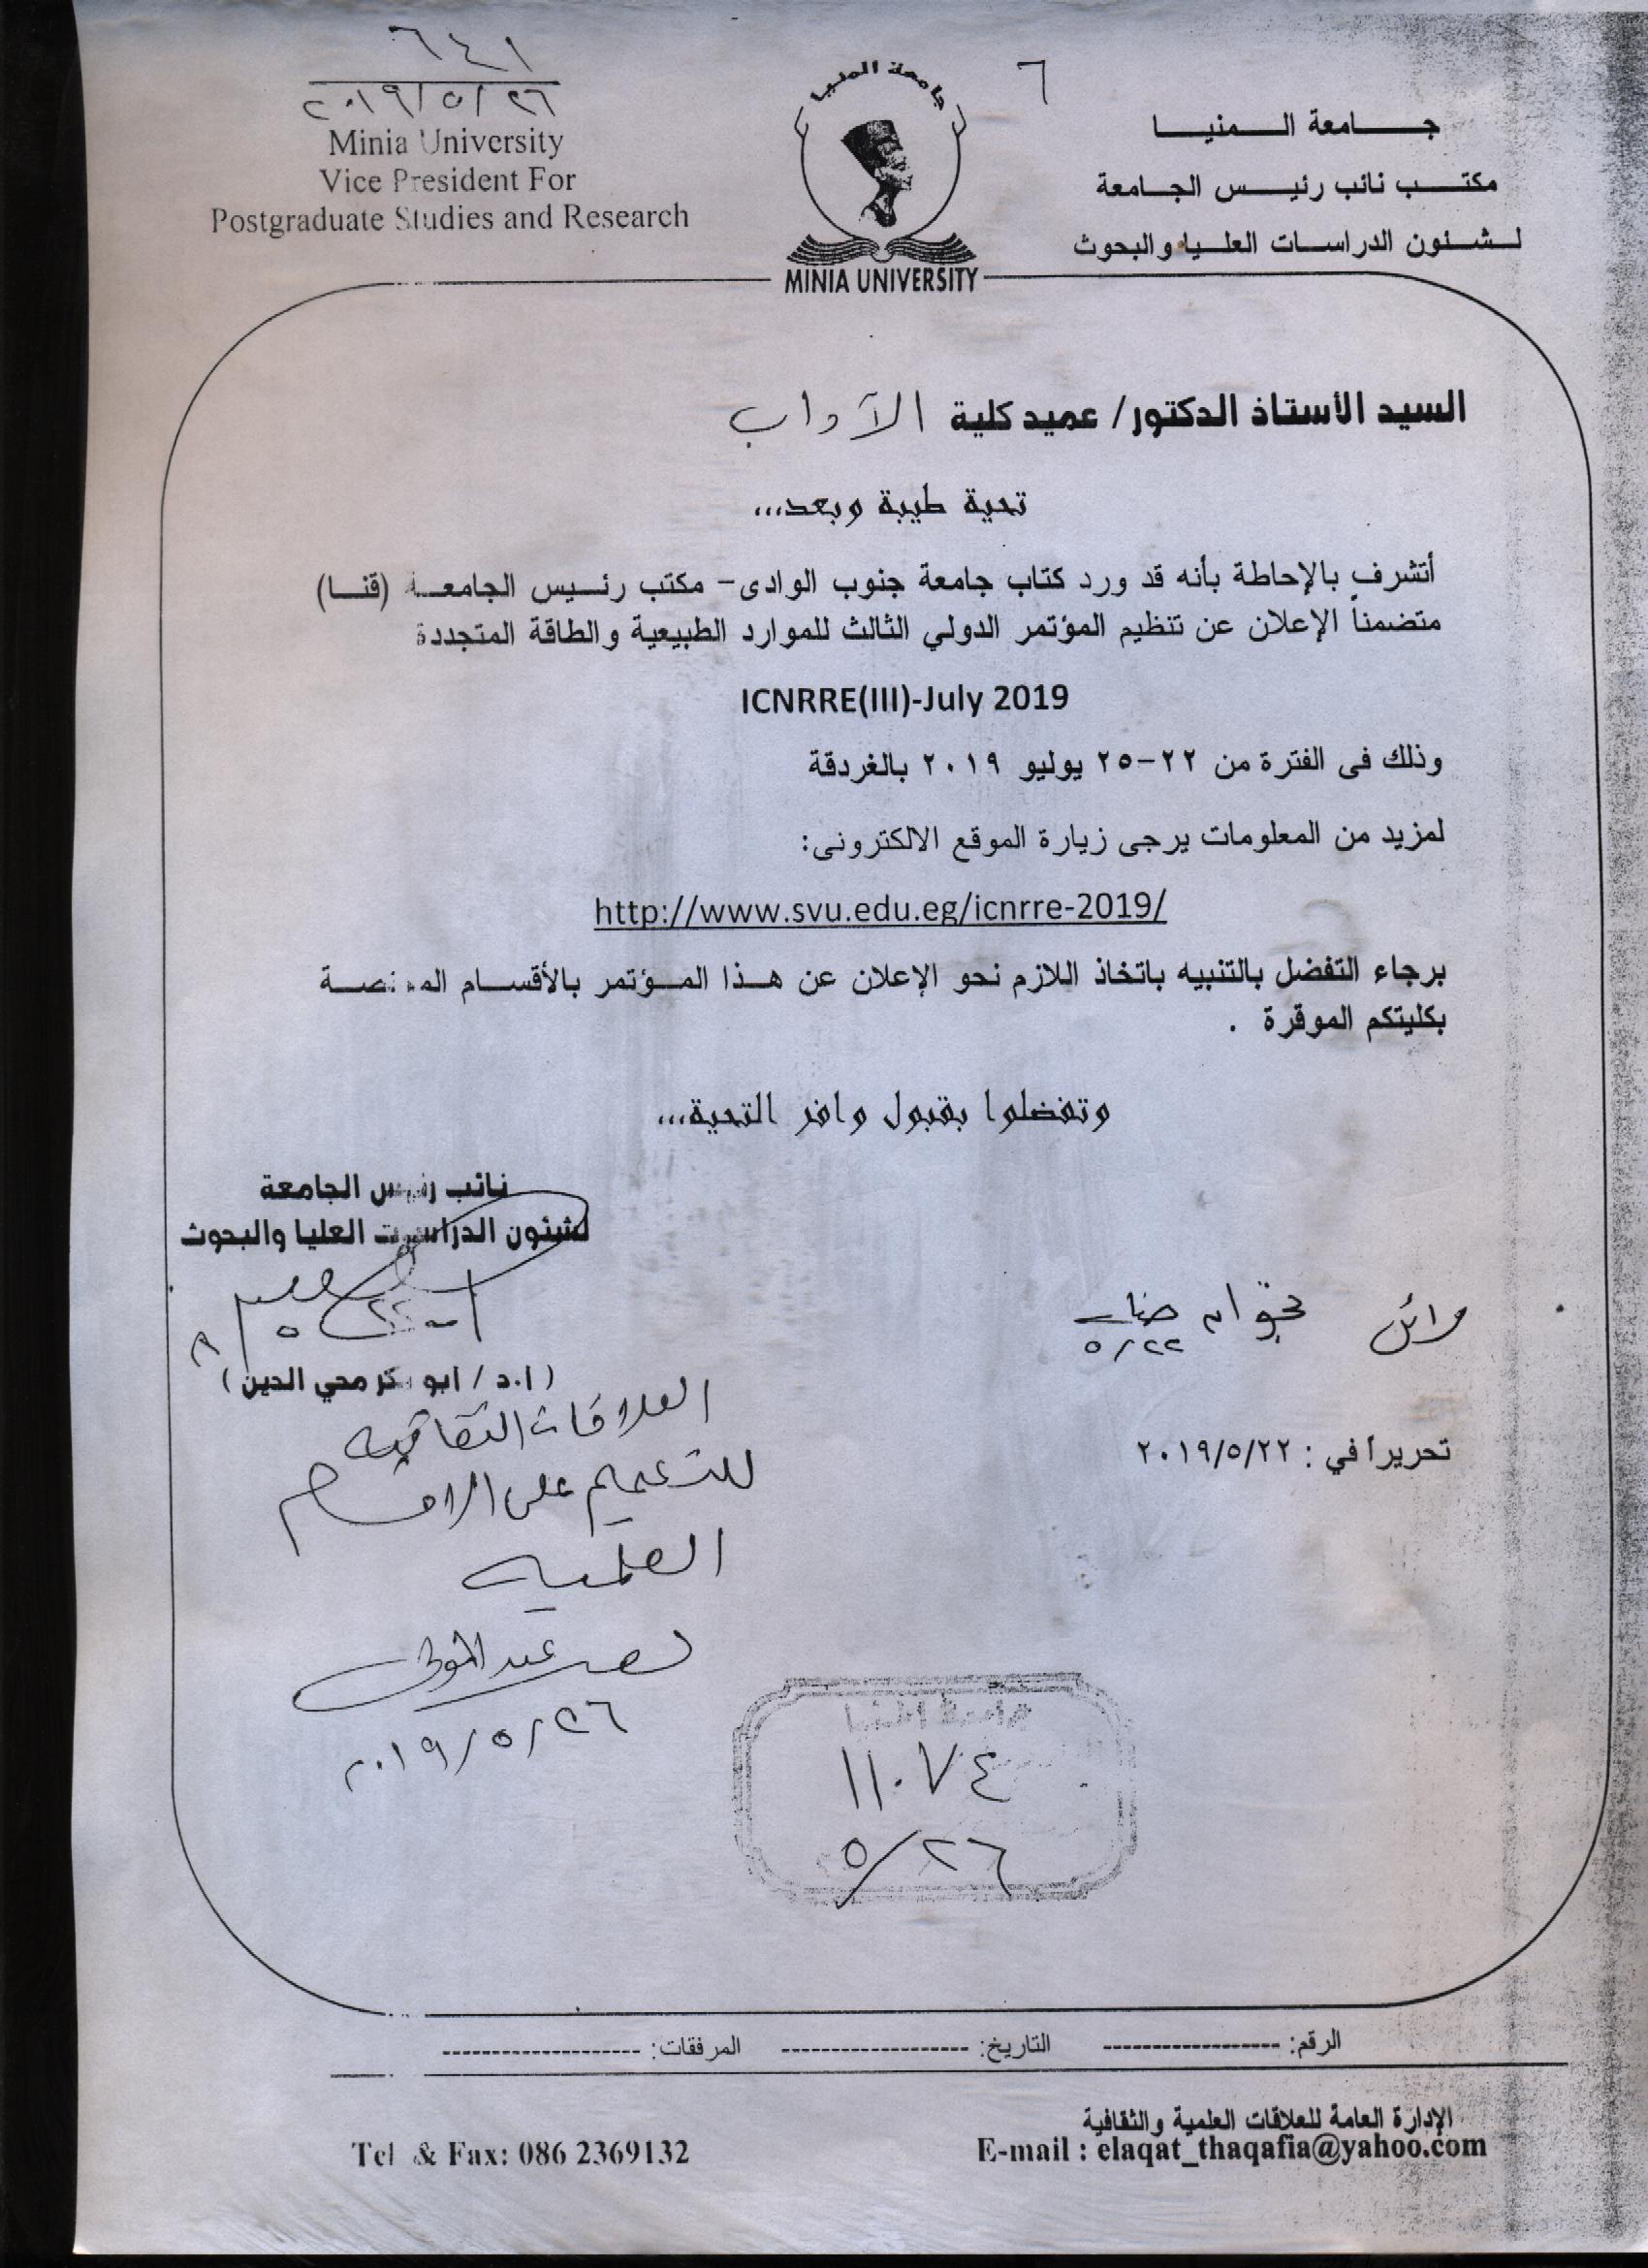 ٦٤١
٢٠١٩/٥/٢٦
Minia University
Vice President For
Postgraduate Studies and Research
جامعة المنيا
MINIA UNIVERSITY
٦
جـــــامعة الـــــمنيـــــا
مكتـــب نائب رئيـــس الجـــامعة
لـــشئون الدراســـات العلـــيا والبحوث
السيد الأستاذ الدكتور/ عميد كلية الآداب
تحية طيبة وبعد...
أتشرف بالإحاطة بأنه قد ورد كتاب جامعة جنوب الوادى- مكتب رئـــيس الجامعـــة (قنـــا)
متضمناً الإعلان عن تنظيم المؤتمر الدولي الثالث للموارد الطبيعية والطاقة المتجددة
ICNRRE(III)-July 2019
وذلك فى الفترة من ٢٢-٢٥ يوليو ٢٠١٩ بالغردقة
لمزيد من المعلومات يرجى زيارة الموقع الالكترونى:
http://www.svu.edu.eg/icnrre-2019/
برجاء التفضل بالتنبيه باتخاذ اللازم نحو الإعلان عن هـــذا المـــؤتمر بالأقســـام
بكليتكم الموقرة .
وتفضلوا بقبول وافر التحية...
نائب رئيس الجامعة
لشئون الدراسات العليا والبحوث
(ا.د / ابو بكر محي الدين)
٥/٢٢
تحريراً في : ٢٠١٩/٥/٢٢
العلاقات الثقافيه
للتعميم على الاقسام
العلميه
عبد المولى
٢٠١٩/٥/٢٦
جامعة المنيا
١١٠٧٤
٥/٢٦
الرقم: ------------------ التاريخ: ------------------- المرفقات: --------------------
الإدارة العامة للعلاقات العلمية والثقافية
Tel & Fax: 086 2369132
E-mail : elaqat_thaqafia@yahoo.com